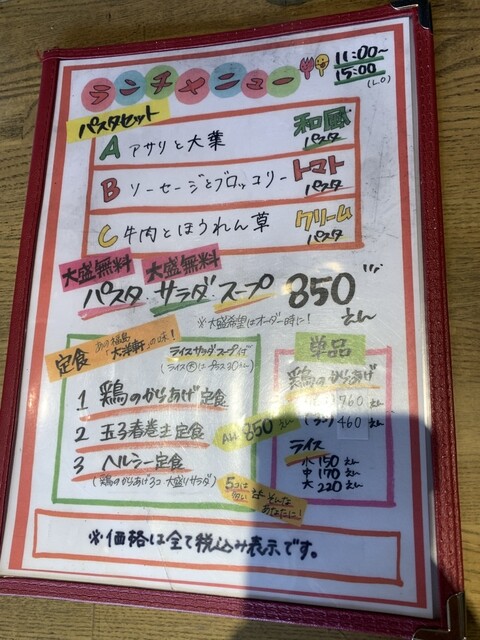 ランチメニュー
11:00~
15:00
(L.O)
パスタセット
A アサリと大葉 和風パスタ
B ソーセージとブロッコリー トマトパスタ
C 牛肉とほうれん草 クリームパスタ
大盛無料 大盛無料
パスタ サラダ スープ 850えん
※大盛希望はオーダー時に!
定食 あの福島「大津軒」の味!
ライスサラダスープ付
(ライス大はプラス50えん)
1 鶏のからあげ定食
2 玉子春巻き定食
3 ヘルシー定食
(鶏のからあげ3コ 大盛りサラダ)
All 850えん
5コは多い そんなあなたに!
単品
鶏のからあげ
760えん
460えん
ライス
小 150えん
中 170えん
大 220えん
※価格は全て税込み表示です。